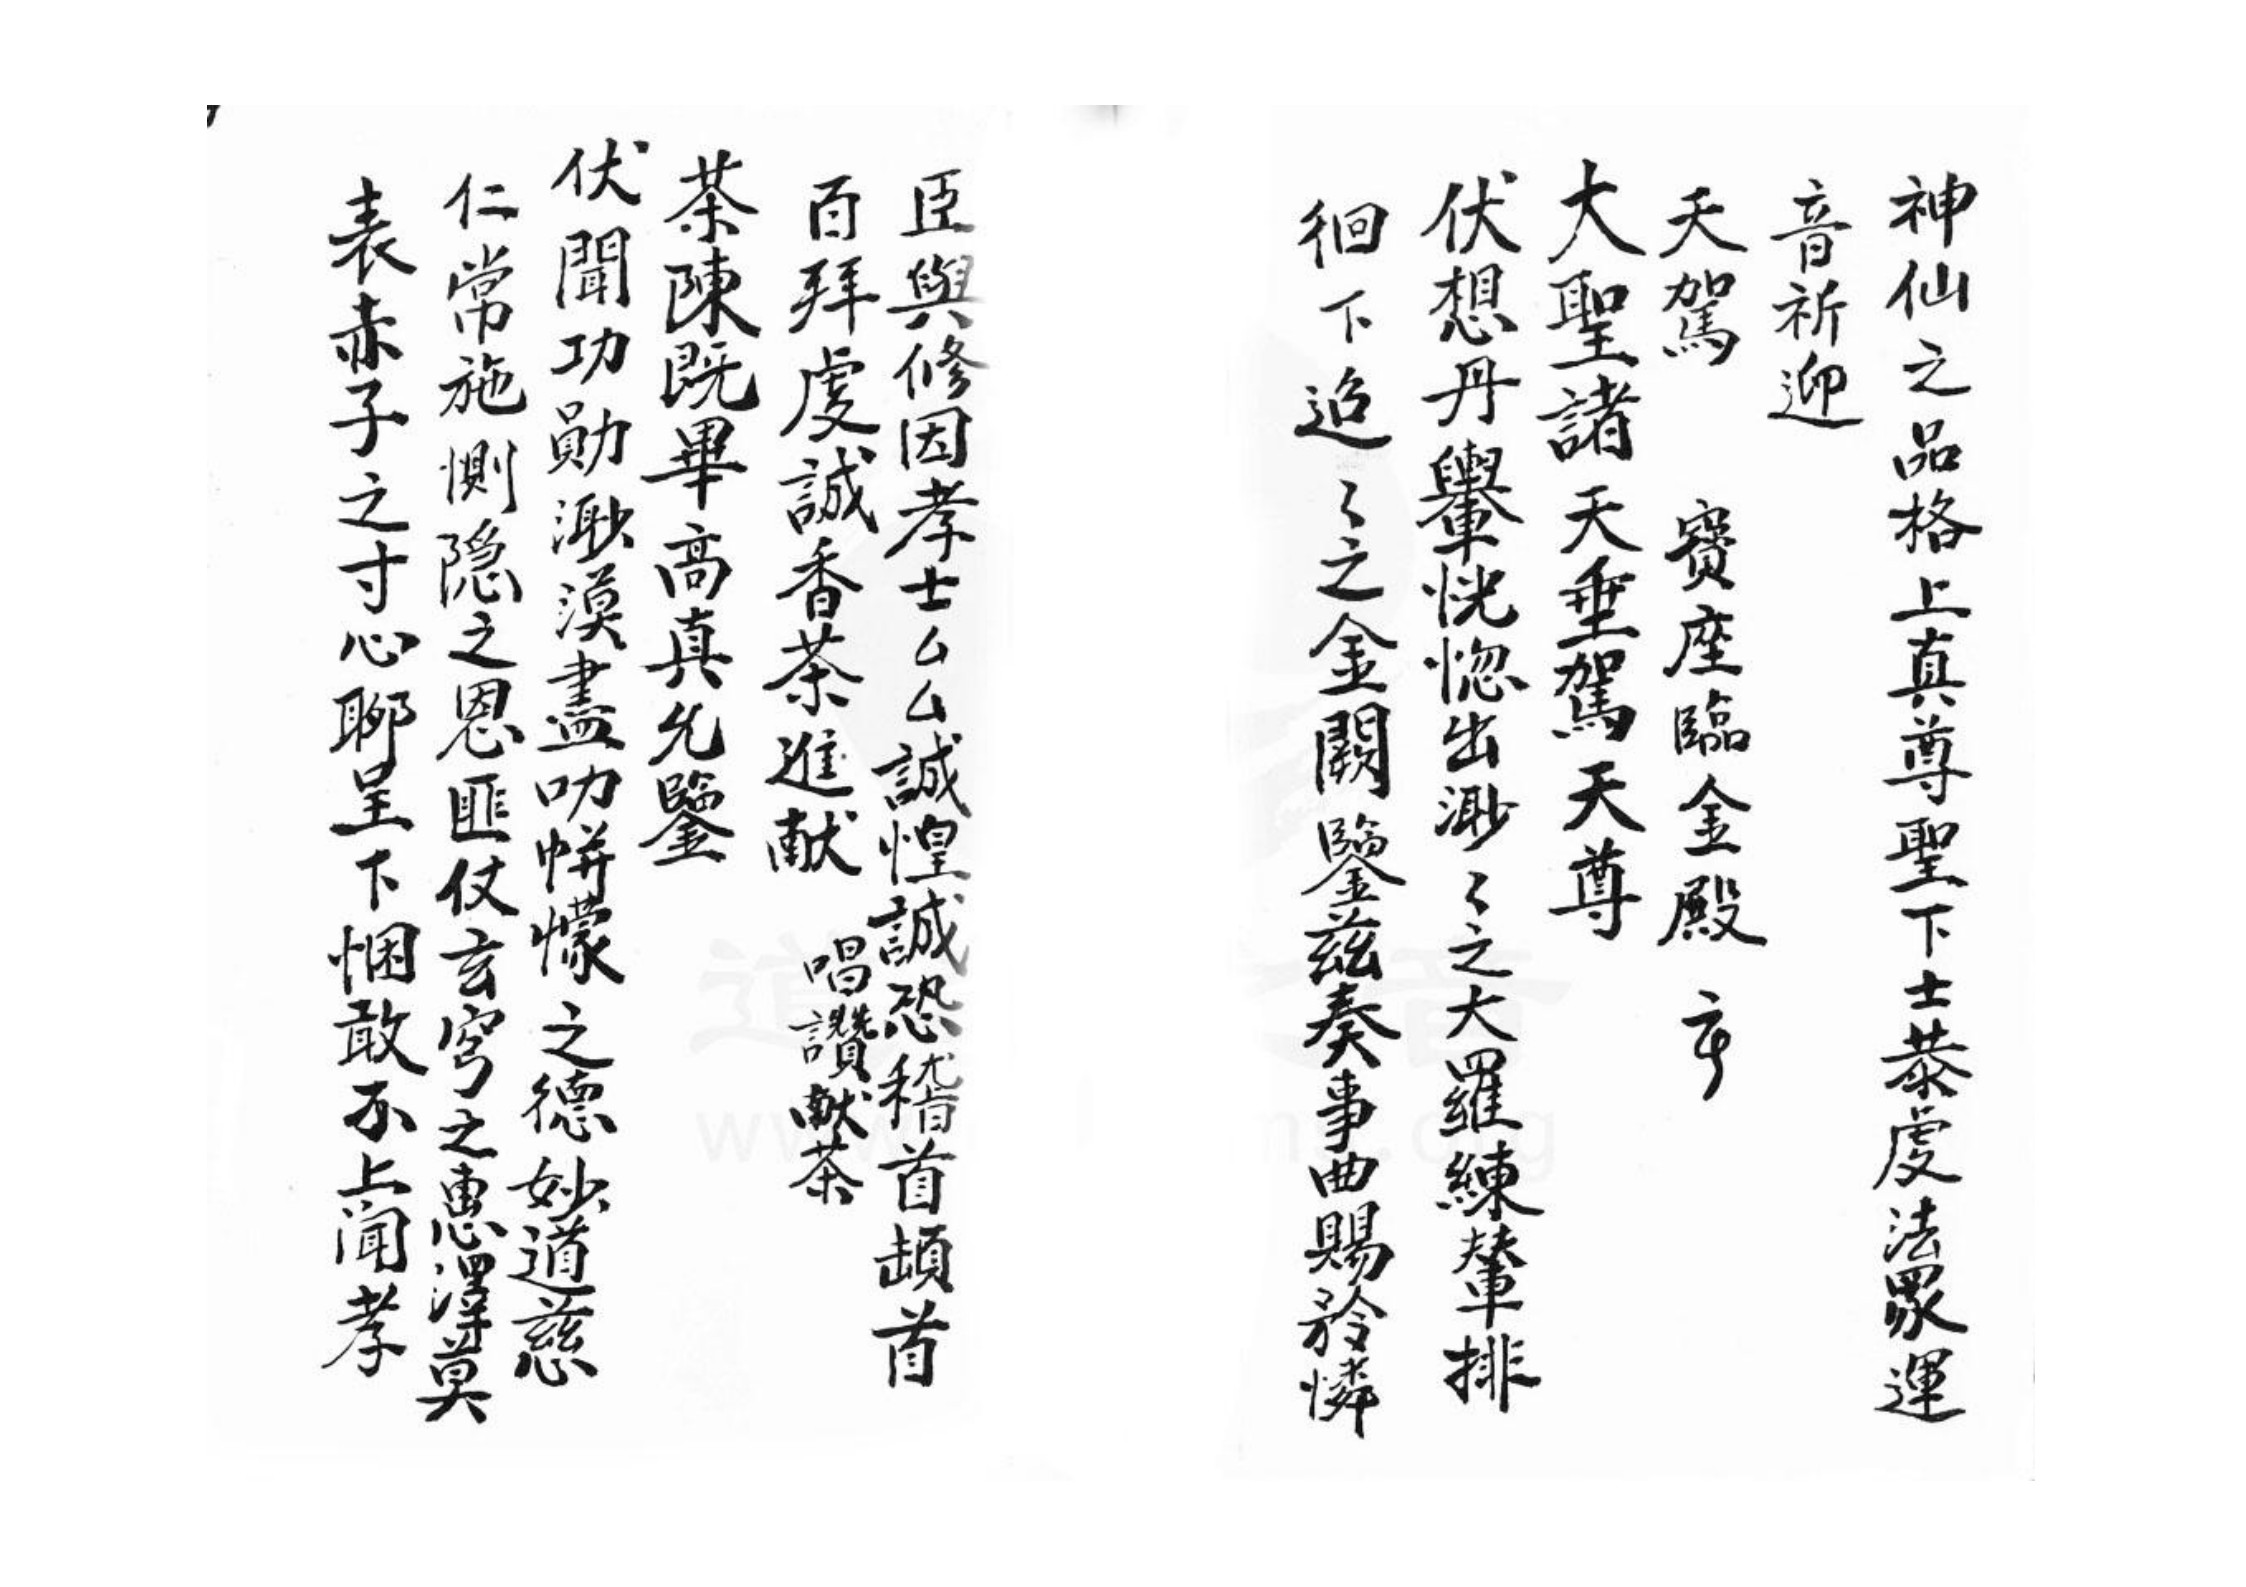 神仙之品格上真尊聖下士恭虔法眾運
音祈迎
天駕　寶座臨金殿
大聖諸天垂駕天尊
伏想丹轝恍惚出渺〻之大羅練輦排
徊下迢〻之金闕鑒兹奏事曲賜矜憐
臣與修因孝士厶厶誠惶誠恐稽首頓首
百拜虔誠香茶進献　唱讚献茶
茶陳既畢高真允鑒
伏聞功勛渺漠盡叻帡幪之德妙道慈
仁常施惻隐之恩匪仗玄穹之惠澤莫
表赤子之寸心聊呈下悃敢不上闻孝